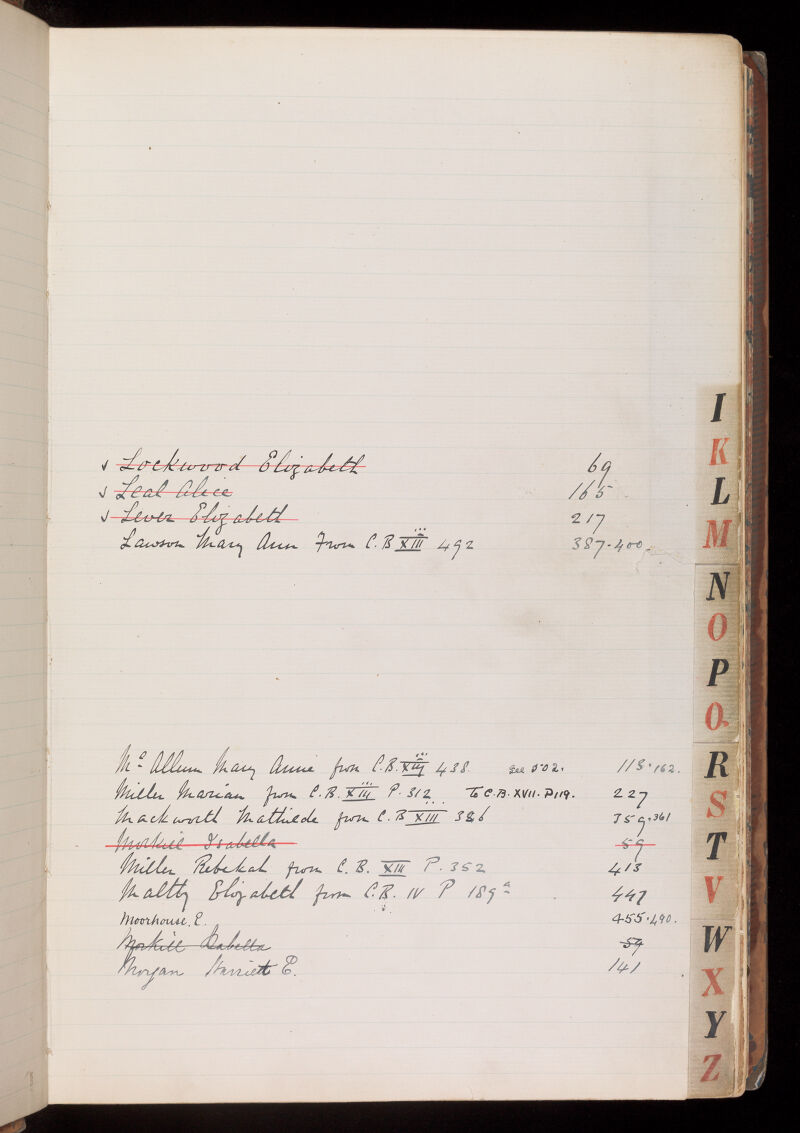 ✓ Lockwood Elizabeth 69
✓ Leal Alice 165
✓ Lever Elizabeth 217
Lawson Mary Ann From C.B XIII 492 387.400.
Mc Allum Mary Annie from C.B. XIII 438. see 502. 113.162.
Miller Marian from C.B. XIII P. 312 To C.B. XVII. P119. 227
Mackworth Mathilde from C.B XIII 386 359.361
Morkill Isabella 59
Miller Rebekah from C.B. XIII P. 352 413
Maltby Elizabeth from C.B. IV P 189a 447
Moorhouse. E. 455.490.
Morkill Isabella 59
Morgan Harriett E. 141
I
K
L
M
N
O
P
Q
R
S
T
V
W
X
Y
Z